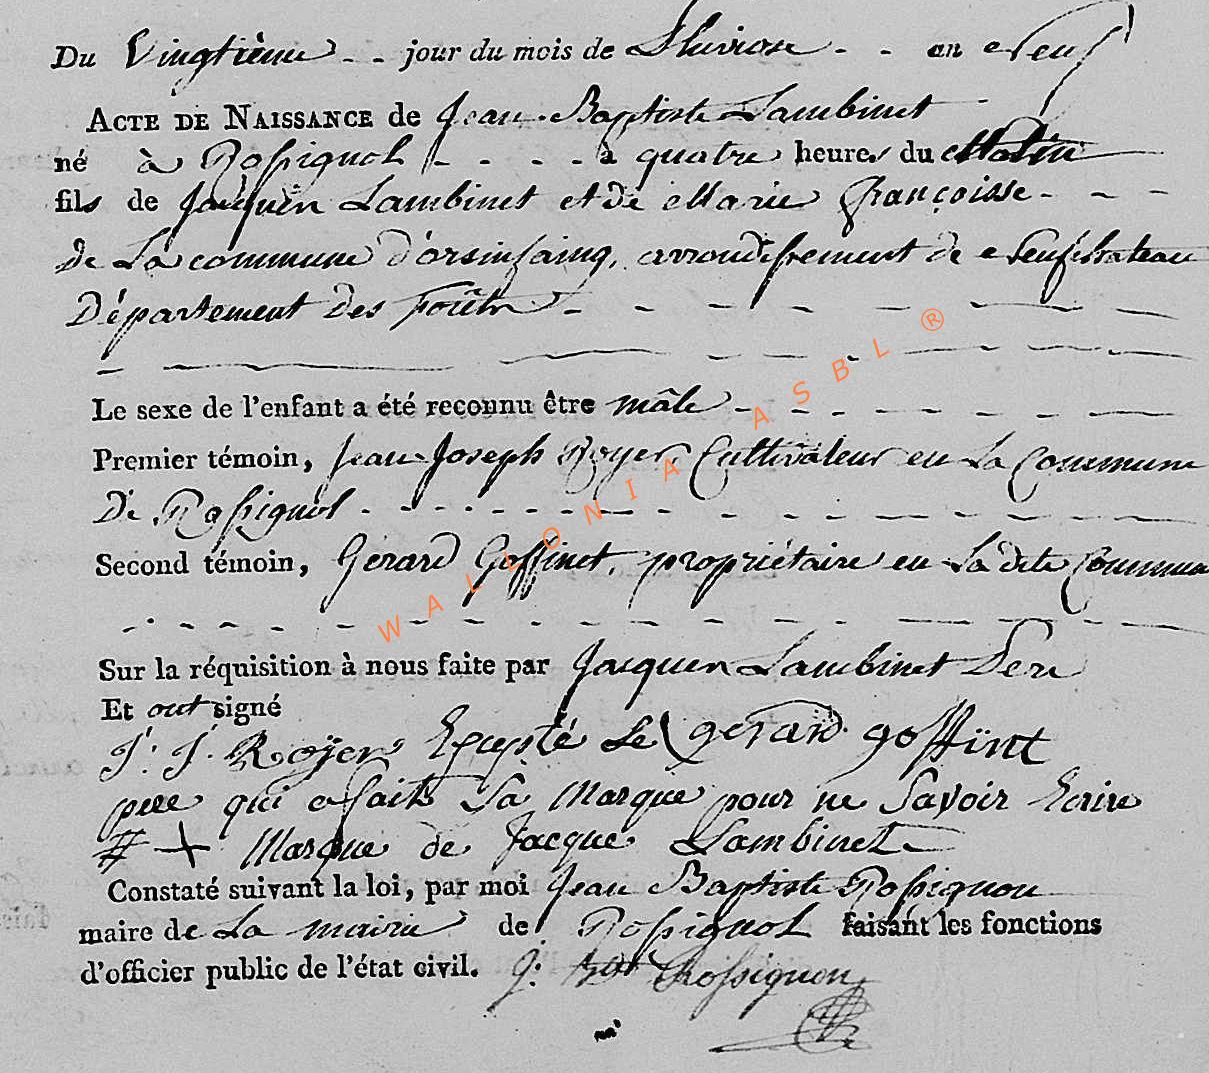 Du Vingtième - - jour du mois de Pluviose - - an Neuf
ACTE DE NAISSANCE de Jean Baptiste Lambinet
né à Rossignol - - - - à quatre heures du Matin
fils de Jacquen Lambinet et de Marie françoisse - - -
De La commune d'orsinfaing, arrondissement de Neufchateau
Département des Forêts - - - - - -
Le sexe de l'enfant a été reconnu être mâle - - - - - -
Premier témoin, Jean Joseph Royer, Cultivateur en La Commune
De Rossignol - - - - - - - - - -
Second témoin, Gerard Goffinet, propriétaire en La dite Commune
Sur la réquisition à nous faite par Jacquen Lambinet Pere
Et ont signé
J: J. Royer Excepté Le gerard goffint
pere qui a fait Sa Marque pour ne Savoir Ecrire
# + Marque de Jacque Lambinet
Constaté suivant la loi, par moi Jean Baptiste Rossignon
maire de La mairie de Rossignol faisant les fonctions
d'officier public de l'état civil. J: Bte Rossignon
WALLONIA ASBL ®